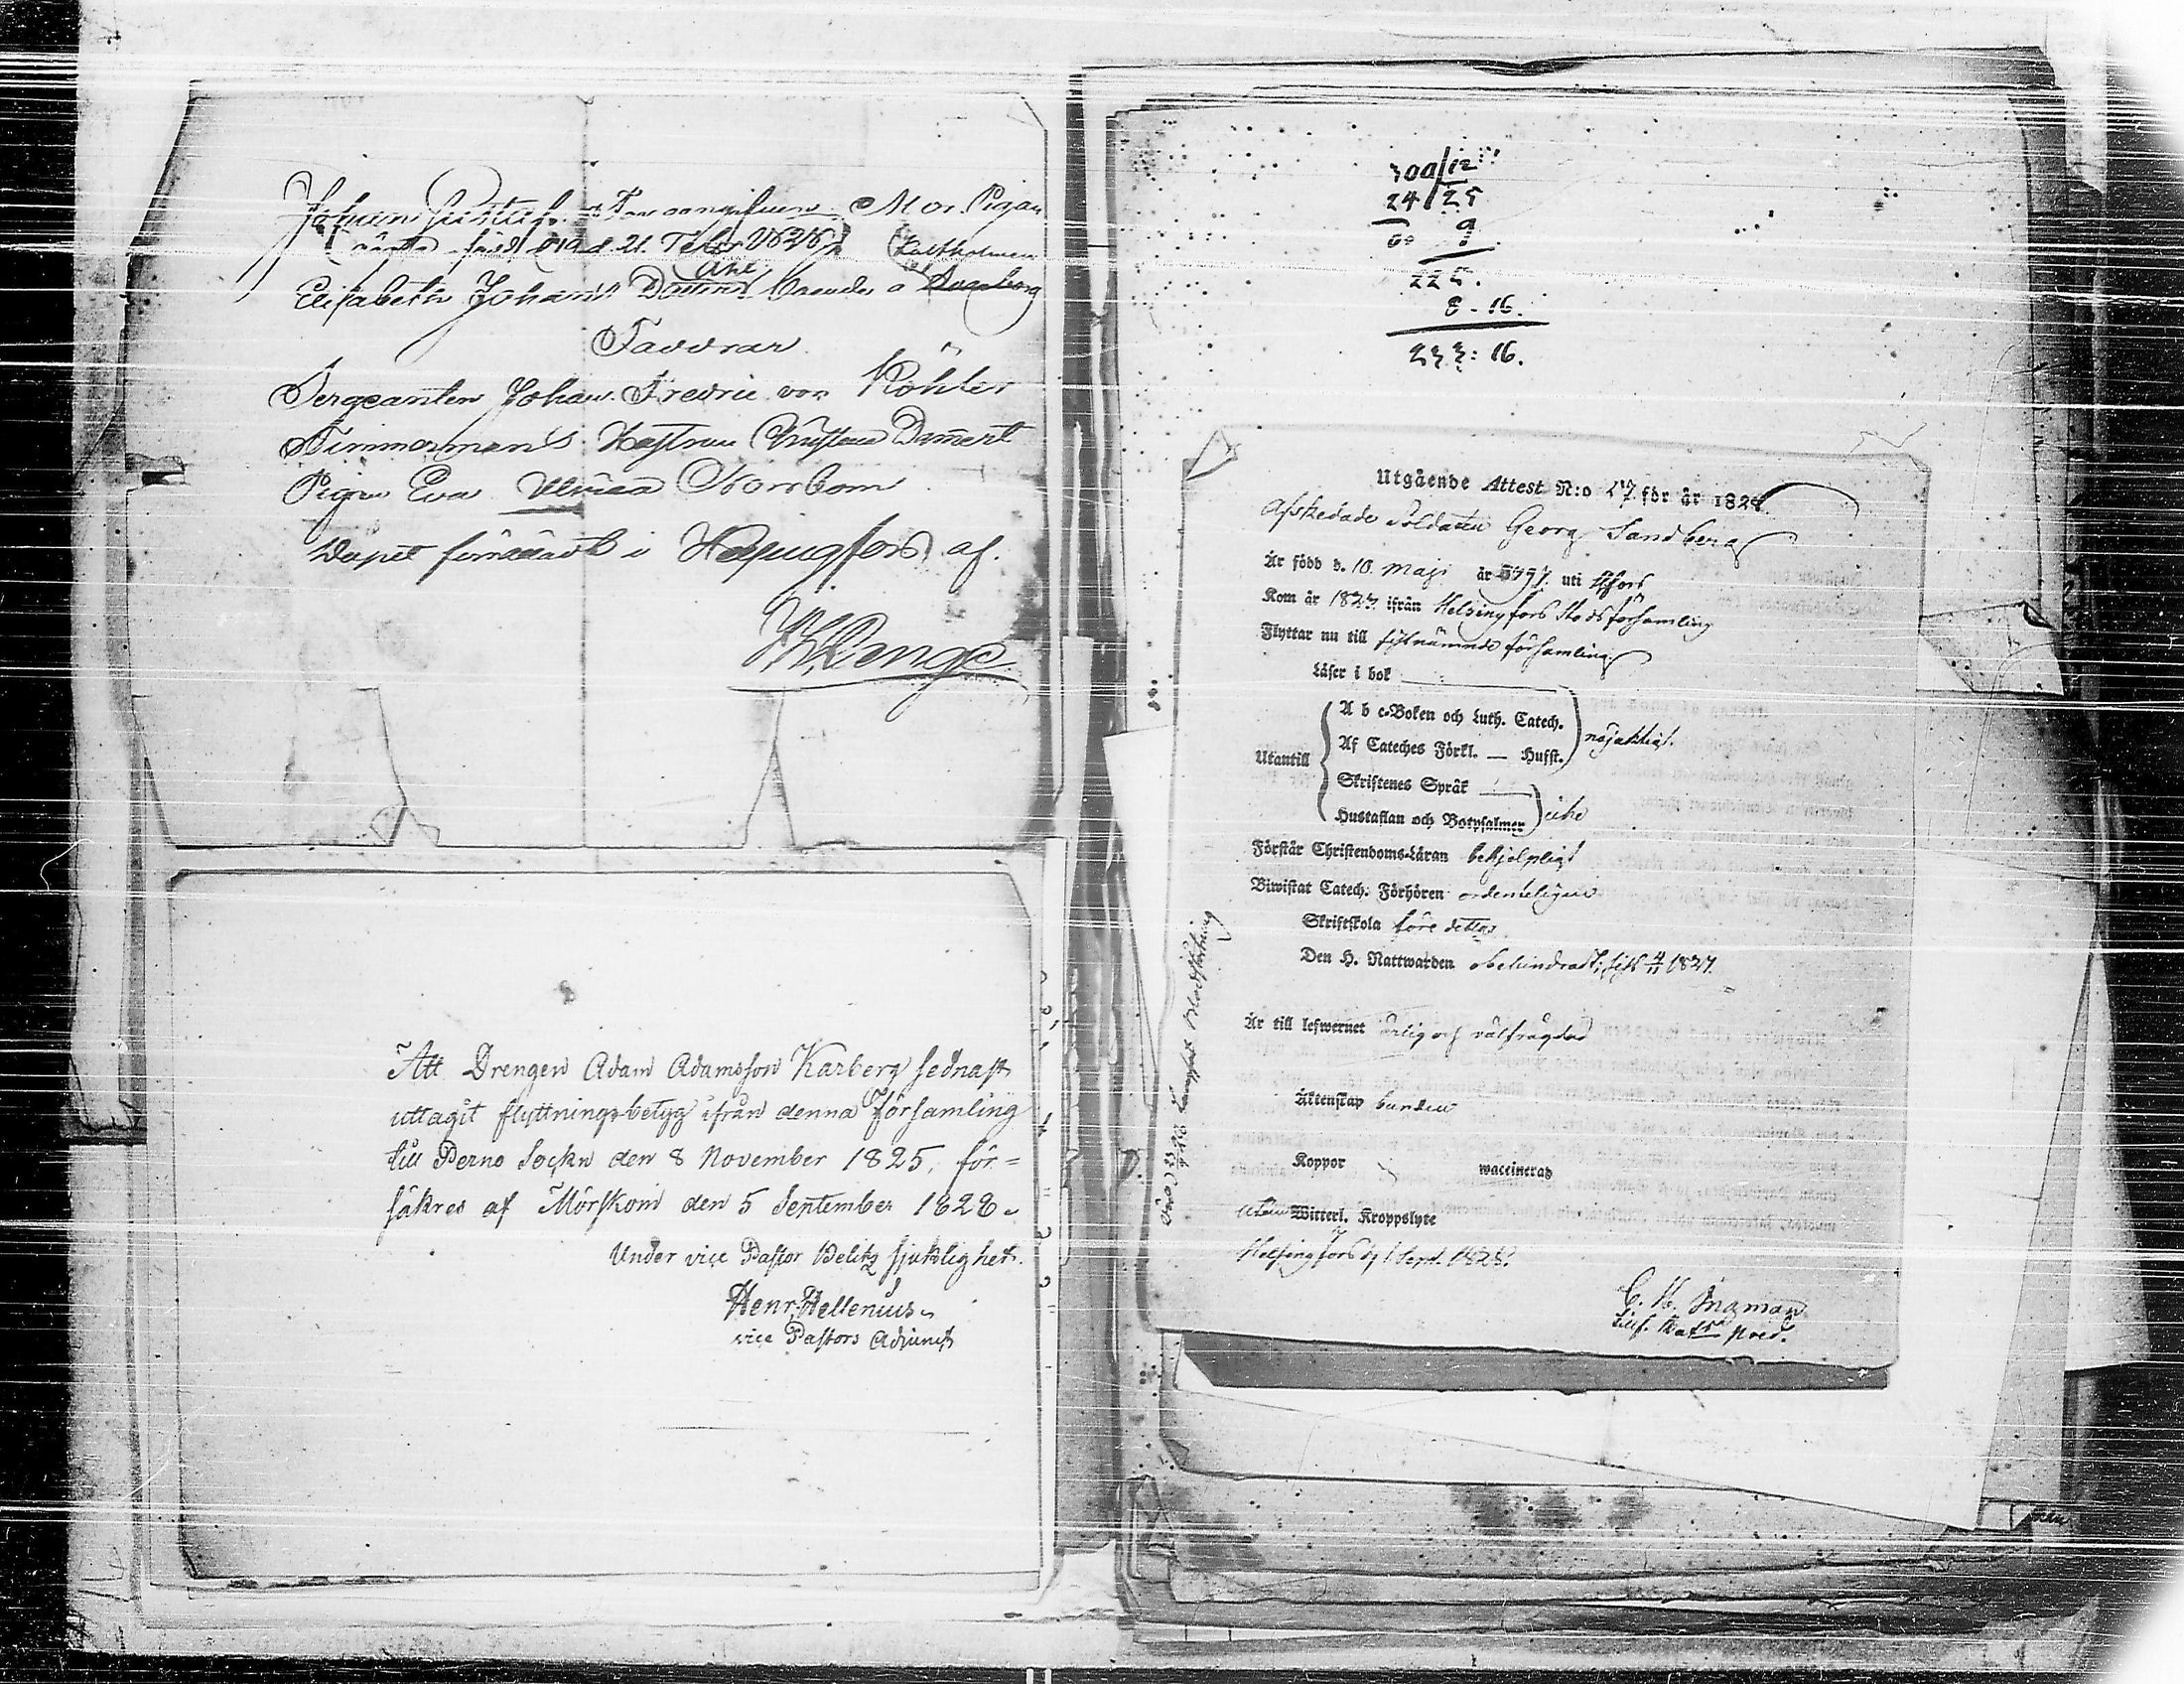 Johan Gustaf Far oangifven Mor. Pigan
född d. 21 Febr 1828
Elisabeth Johans Dotter boende å
Faddrar
Sergeanten Johan Fredric von Köhler
Timmermans Hustrun Christina Dammert
Pigan Eva Ulrica Norrbom
Döpet förrättadt i Helsingfors af.
Att Drengen Adam Adamsson Karberg sednast
uttagit flyttnings-betyg ifrån denna Församling
till Perno Sockn den 8 November 1825, för=
säkres af Mörskom den 5 September 1828.
Under vice Pastor Belitz sjuklighet.
Henr. Hellenius
vice Pastors Adjunct
300/12
24/25
60 9
225.
8-16.
233:16.
Utgående Attest N:o 57. för år 1828.
Afskedade Soldaten Georg Sandberg
Är född d. 10. Maji år 1797. uti H:fors
Kom år 1827. ifrån Helsingfors Stads församling
Flyttar nu till sistnämnde församling
Läser i bok
A b c-Boken och Luth. Catech.
Af Cateches Förkl. — Husst.
nöjaktigt.
Utantill
Skriftenes Språk
Hustaflan och Botpsalmer
icke
Förstår Christendoms-Läran behjelpligt
Biwistat Catech. Förhören ordenteligen
Skriftskola före detta
Den H. Nattwarden obehindradt, sist 4/11 1827.
Är till lefwernet ärlig och välfrägdad
Äktenskap bunden
Koppor waccinerad
utan Witterl. Kroppslyte
Helsingfors d. 1 Sept. 1828.
C. H. Ingman